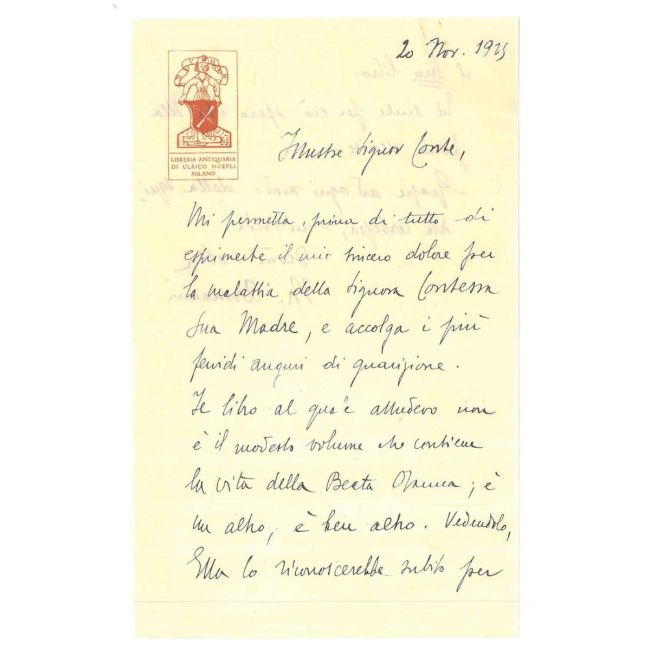 20 Nov. 1925
LIBRERIA ANTIQUARIA
DI ULRICO HOEPLI
MILANO
Illustre Signor Conte,
Mi permetta, prima di tutto di
esprimerle il mio sincero dolore per
la malattia della Signora Contessa
Sua Madre, e accolga i più
fervidi auguri di guarigione.
Il libro al quale alludevo non
è il modesto volume che contiene
la vita della Beata Osanna; è
un altro, è ben altro. Vedendolo,
Ella lo riconoscerebbe subito per